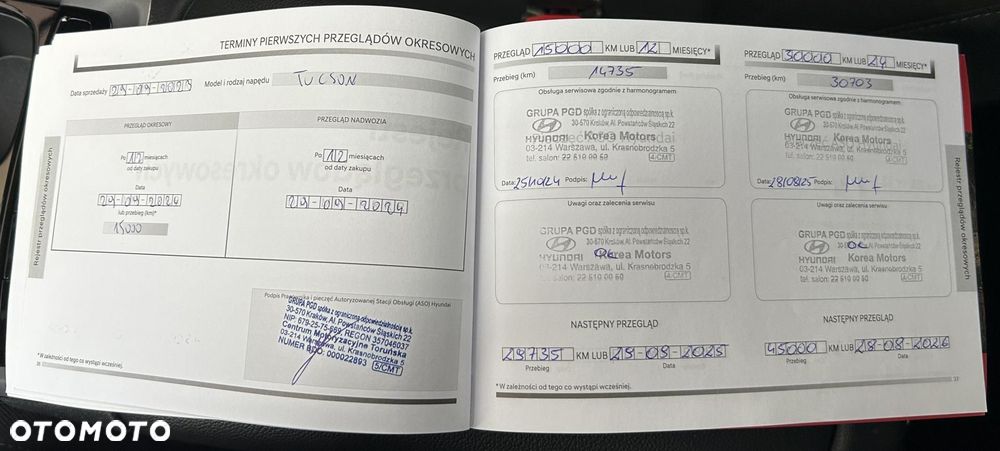 TERMINY PIERWSZYCH PRZEGLĄDÓW OKRESOWYCH
Data sprzedaży 29-09-2023 Model i rodzaj napędu TUCSON
PRZEGLĄD OKRESOWY
Po 12 miesiącach
od daty zakupu
Data
29-09-2024
lub przebieg (km)*
15000
PRZEGLĄD NADWOZIA
Po 12 miesiącach
od daty zakupu
Data
29-09-2024
Rejestr przeglądów okresowych
Podpis Pracownika i pieczęć Autoryzowanej Stacji Obsługi (ASO) Hyundai
GRUPA PGD spółka z ograniczoną odpowiedzialnością sp.k.
30-570 Kraków, Al. Powstańców Śląskich 22
REGON 357045037
Centrum Motoryzacyjne Toruńska
03-214 Warszawa, ul. Krasnobrodzka 5
NUMER BDO: 000022893 5/CMT
*W zależności od tego co wystąpi wcześniej.
PRZEGLĄD 15000 KM LUB 12 MIESIĘCY*
Przebieg (km) 14735
Obsługa serwisowa zgodnie z harmonogramem
GRUPA PGD spółka z ograniczoną odpowiedzialnością sp.k.
30-570 Kraków, Al. Powstańców Śląskich 22
HYUNDAI Korea Motors
03-214 Warszawa, ul. Krasnobrodzka 5
tel. salon: 22 519 00 60 4-CMT
Data: 25/10/24 Podpis:
Uwagi oraz zalecenia serwisu
GRUPA PGD spółka z ograniczoną odpowiedzialnością sp.k.
30-570 Kraków, Al. Powstańców Śląskich 22
HYUNDAI Korea Motors
03-214 Warszawa, ul. Krasnobrodzka 5
tel. salon: 22 519 00 60 4-CMT
NASTĘPNY PRZEGLĄD
29735 KM LUB 25-09-2025
Przebieg Data
*W zależności od tego co wystąpi wcześniej.
PRZEGLĄD 30000 KM LUB 24 MIESIĘCY*
Przebieg (km) 30703
Obsługa serwisowa zgodnie z harmonogramem
GRUPA PGD spółka z ograniczoną odpowiedzialnością sp.k.
30-570 Kraków, Al. Powstańców Śląskich 22
HYUNDAI Korea Motors
03-214 Warszawa, ul. Krasnobrodzka 5
tel. salon: 22 519 00 60 4-CMT
Data: 28/08/25 Podpis:
Uwagi oraz zalecenia serwisu
GRUPA PGD spółka z ograniczoną odpowiedzialnością sp.k.
30-570 Kraków, Al. Powstańców Śląskich 22
HYUNDAI Korea Motors
03-214 Warszawa, ul. Krasnobrodzka 5
tel. salon: 22 519 00 60 4-CMT
NASTĘPNY PRZEGLĄD
45000 KM LUB 28-08-2026
Przebieg Data
37
Rejestr przeglądów okresowych
OTOMOTO